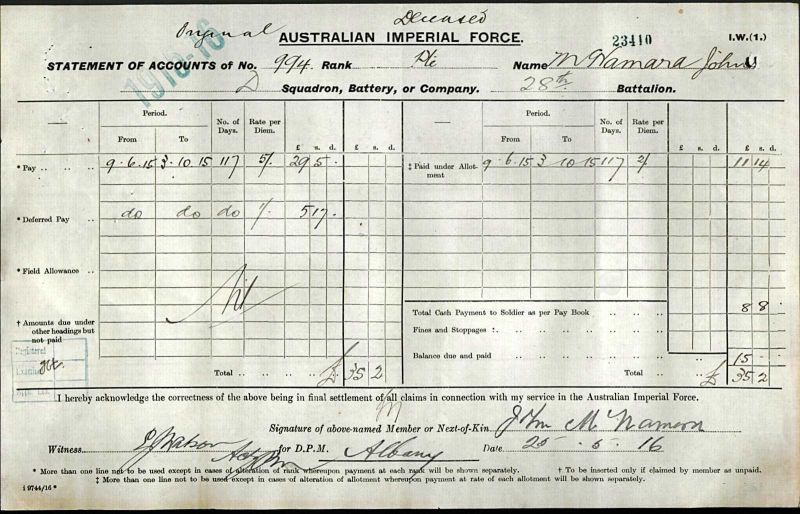 Original Deceased
1915-16
AUSTRALIAN IMPERIAL FORCE.
23410
I.W.(1.)
STATEMENT OF ACCOUNTS of No. 994 Rank Pte Name McNamara John
D Squadron, Battery, or Company. 28th Battalion.
Period. No. of Days. Rate per Diem. £ s. d. £ s. d. Period. No. of Days. Rate per Diem. £ s. d. £ s. d.
From To From To
* Pay .. .. .. 9.6.15 3.10.15 117 5/. 29 5 . ‡ Paid under Allotment 9.6.15 3.10.15 117 2/. 11 14
* Deferred Pay .. do do do 1/. 5 17 .
* Field Allowance ..
Nil
Total Cash Payment to Soldier as per Pay Book .. .. .. 8 8
† Amounts due under other headings but not paid
Fines and Stoppages †. .. .. .. .. ..
Registered
Balance due and paid .. .. .. .. .. 15 .
Total .. .. £ 35 2 £ 35 2
I hereby acknowledge the correctness of the above being in final settlement of all claims in connection with my service in the Australian Imperial Force.
Signature of above-named Member or Next-of-Kin John McNamara
Witness Watson for D.P.M. Albany Date 25.5.16
* More than one line not to be used except in cases of alteration of rank whereupon payment at each rank will be shown separately. † To be inserted only if claimed by member as unpaid.
‡ More than one line not to be used except in case of alteration of allotment whereupon payment at rate of each allotment will be shown separately.
i 9744/16*